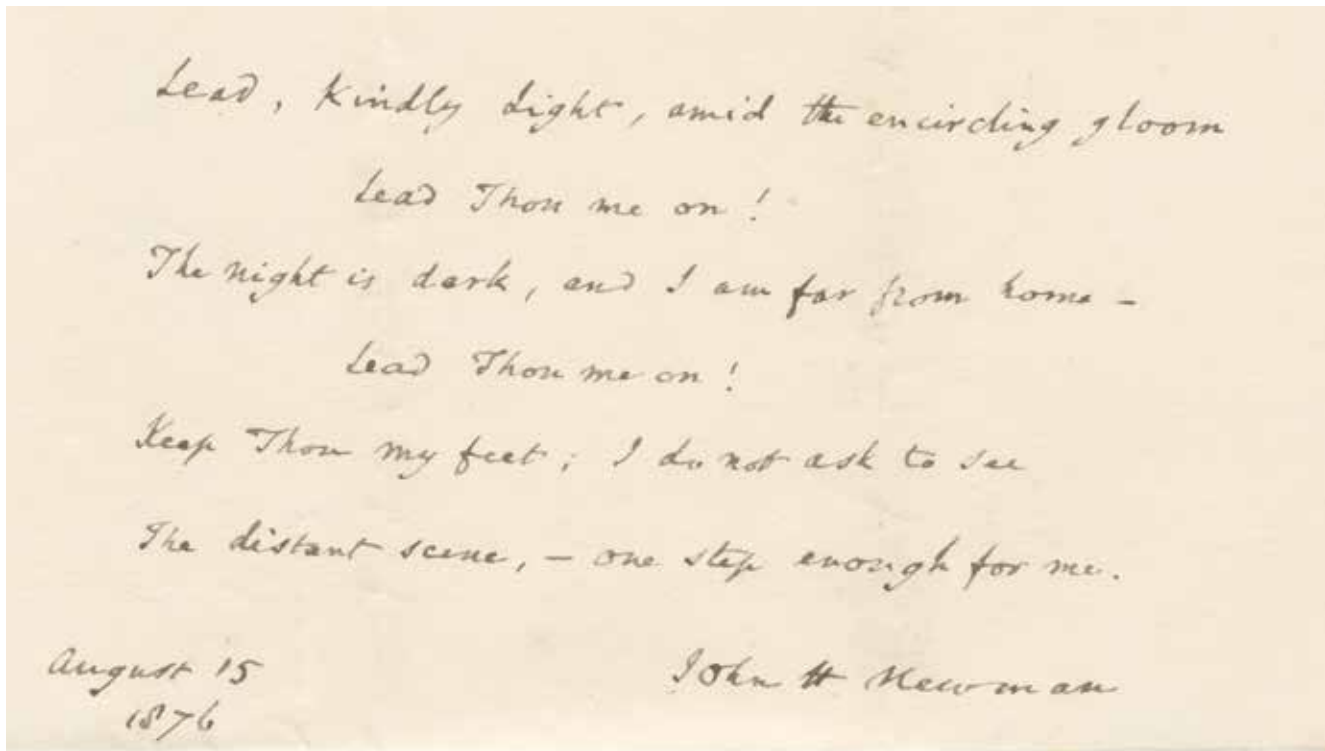 Lead, Kindly Light, amid the encircling gloom
Lead Thou me on!
The night is dark, and I am far from home –
Lead Thou me on!
Keep Thou my feet; I do not ask to see
The distant scene, – one step enough for me.
August 15
1876
John H Newman